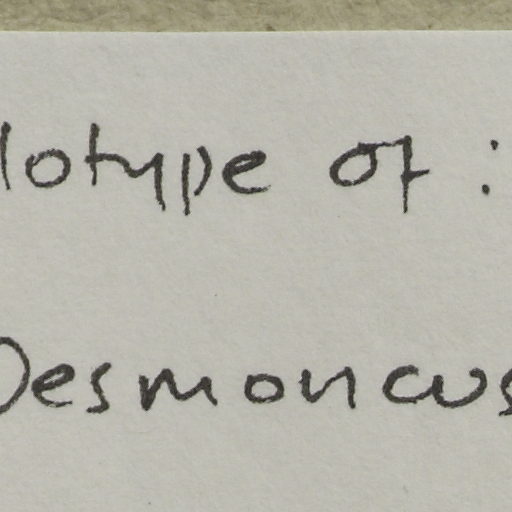 lotype of :
Desmoncus